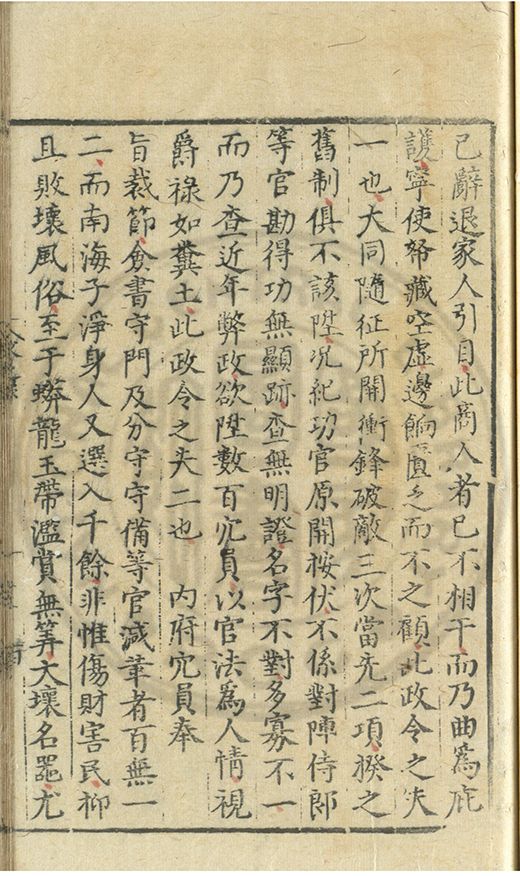 已辭退家人引目此商人者已不相干而乃曲為庇
護寧使帑藏空虛邊餉匱乏而不之顧此政令之失
一也大同隨征所開衝鋒破敵三次當先二項揆之
舊制俱不該陞况紀功官原開桉伏不係對陣侍郎
等官勘得功無顯跡查無明證名字不對多寡不一
而乃查近年弊政欲陞數百宂員以官法為人情視
爵祿如糞土此政令之失二也 内府宂員奉
旨裁節僉書守門及分守守備等官減革者百無一
二而南海子淨身人又選入千餘非惟傷財害民抑
且敗壞風俗至于蟒龍玉帶濫賞無筭大壞名噐尤